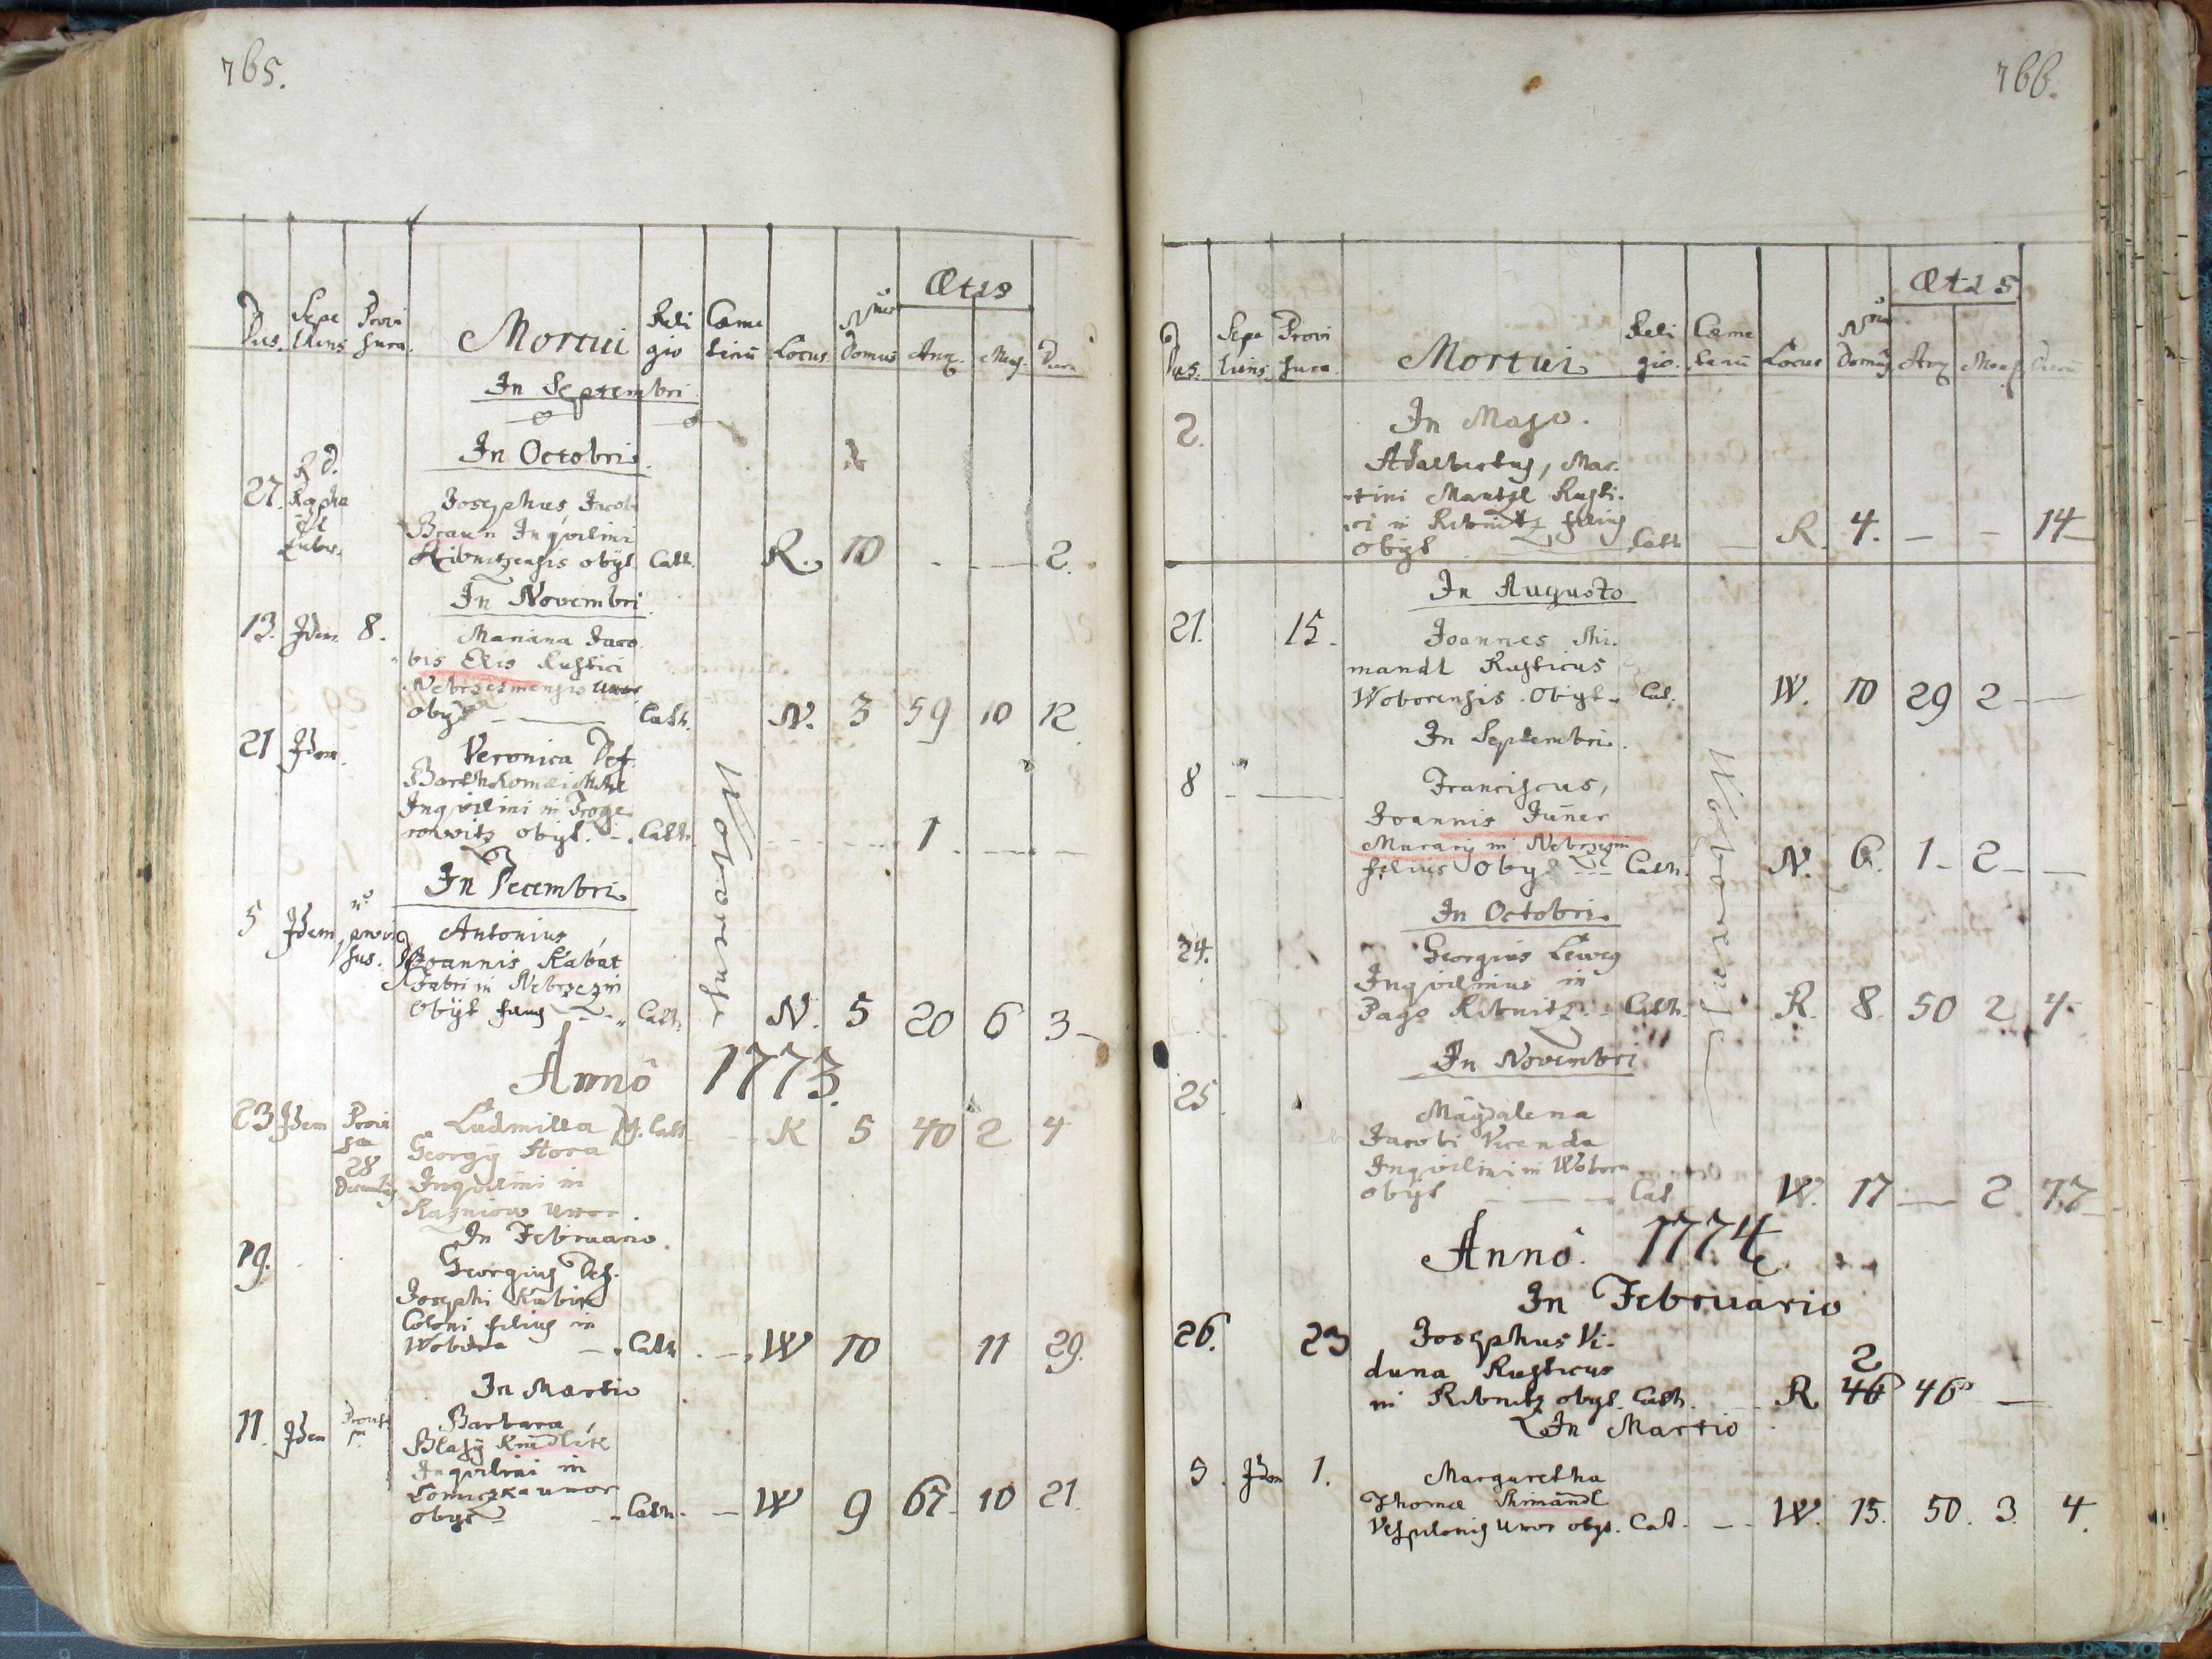 765.
Ætis
Dies. Sepeliens Provisura. Mortui Religio Cœmeteriū Locus Nrus Domus Ann. Mens. Dier.
In Septembri
In Octobri.
27. R d. Josephus, Jacobi
Braun Inqvilini
Ribnitzensis obÿt Cath. R. 10 - - 2.
In Novembri
13. Idem 8. Mariana Jaco-
bis Elis Rustici
Nebrzezinensis uxor
obÿt Cath. N. 3 59 10 12
21 Idem. Veronica Def.
Bartholomæi
Inqvilini in
rowitz obÿt. Cath. 1
In Decembri
5 Idem ñ provisus. Antonius,
Joannis Kabát
Fabri in Nebrzezin
obÿt filius Cath. N. 5 20 6 3
Woborensÿ
Annô 1773.
23 Idem Provisa 28 Decembris Ludmilla Cath. K 5 40 2 4
Georgÿ Hora
Inqvilini in
Kazniow uxor.
In Februario.
19. Georgius Def.
Josephi Kubik
Coloni filius in
Wobora Cath. W 10 11 29.
In Martio
11. Idem Provisa Barbara,
Blasÿ Knedlik
Inqvilini in
Lomiczka uxor
obÿt Cath. W 9 67 10 21.
766.
Ætis
Dies. Sepeliens Provisura. Mortui Religio. Cœmeteriū Locus Nrus Domus Ann Mens Dierū
2. In Majo.
Adalbertus, Mar-
tini Mantzl Rusti-
ci in Ribnitz filius
obÿt Cath R. 4. - - 14
In Augusto
21. 15. Joannes Shi-
mandl Rusticus
Woborensis. Obÿt. Cat. W. 10 29 2 -
In Septembri.
8 Franciscus,
Joannis Juner
Murarÿ in Nebrzezin
filius Obÿt Cath. N. 6. 1 - 2 -
In Octobri.
24. Georgius
Inqvilinus in
Pago Ribnitz. Cath. R. 8 50 2 4.
Woborensÿ
In Novembri
25 Magdalena
Jacobi
Inqvilini in Wobora
obÿt Cat W. 17 - 2 17
Annô. 1774
In Februario
26. 23 Josephus Vi-
duna Rusticus 2
in Ribnitz obÿt. Cath. R 46 46 -
In Martio
5. Idem 1. Margaretha
Thomæ Shimandl
Vespilonis uxor obÿt. Cat. W. 15. 50. 3. 4.